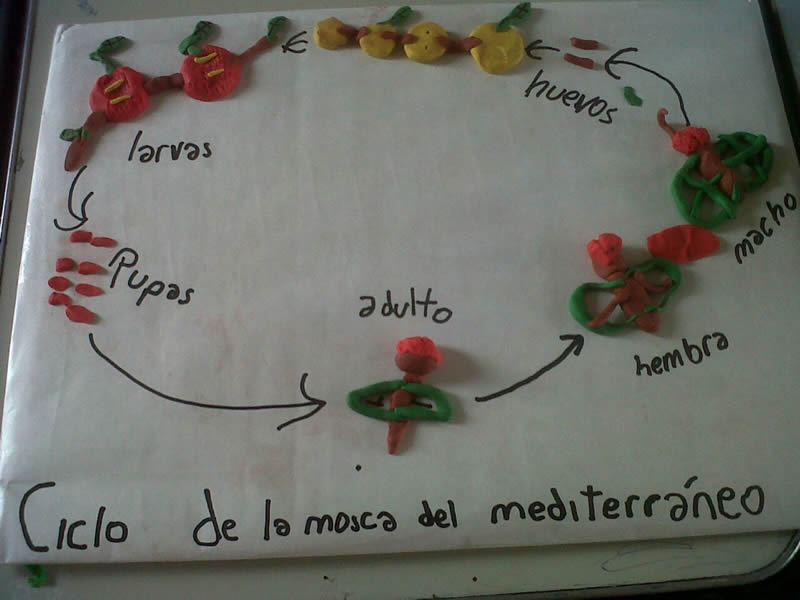 huevos
larvas
macho
Pupas
adulto
hembra
Ciclo de la mosca del mediterráneo